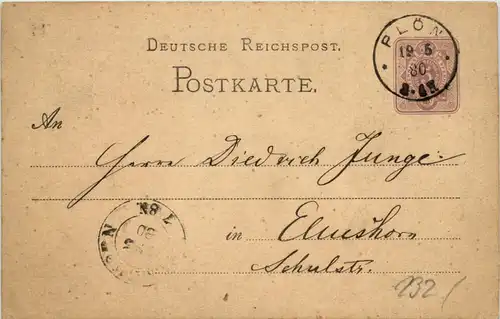 DEUTSCHE REICHSPOST.
POSTKARTE.
PLÖN
19 5
80
An
Herrn Diedrich Junge
in Elmshorn
Schulstr.
232